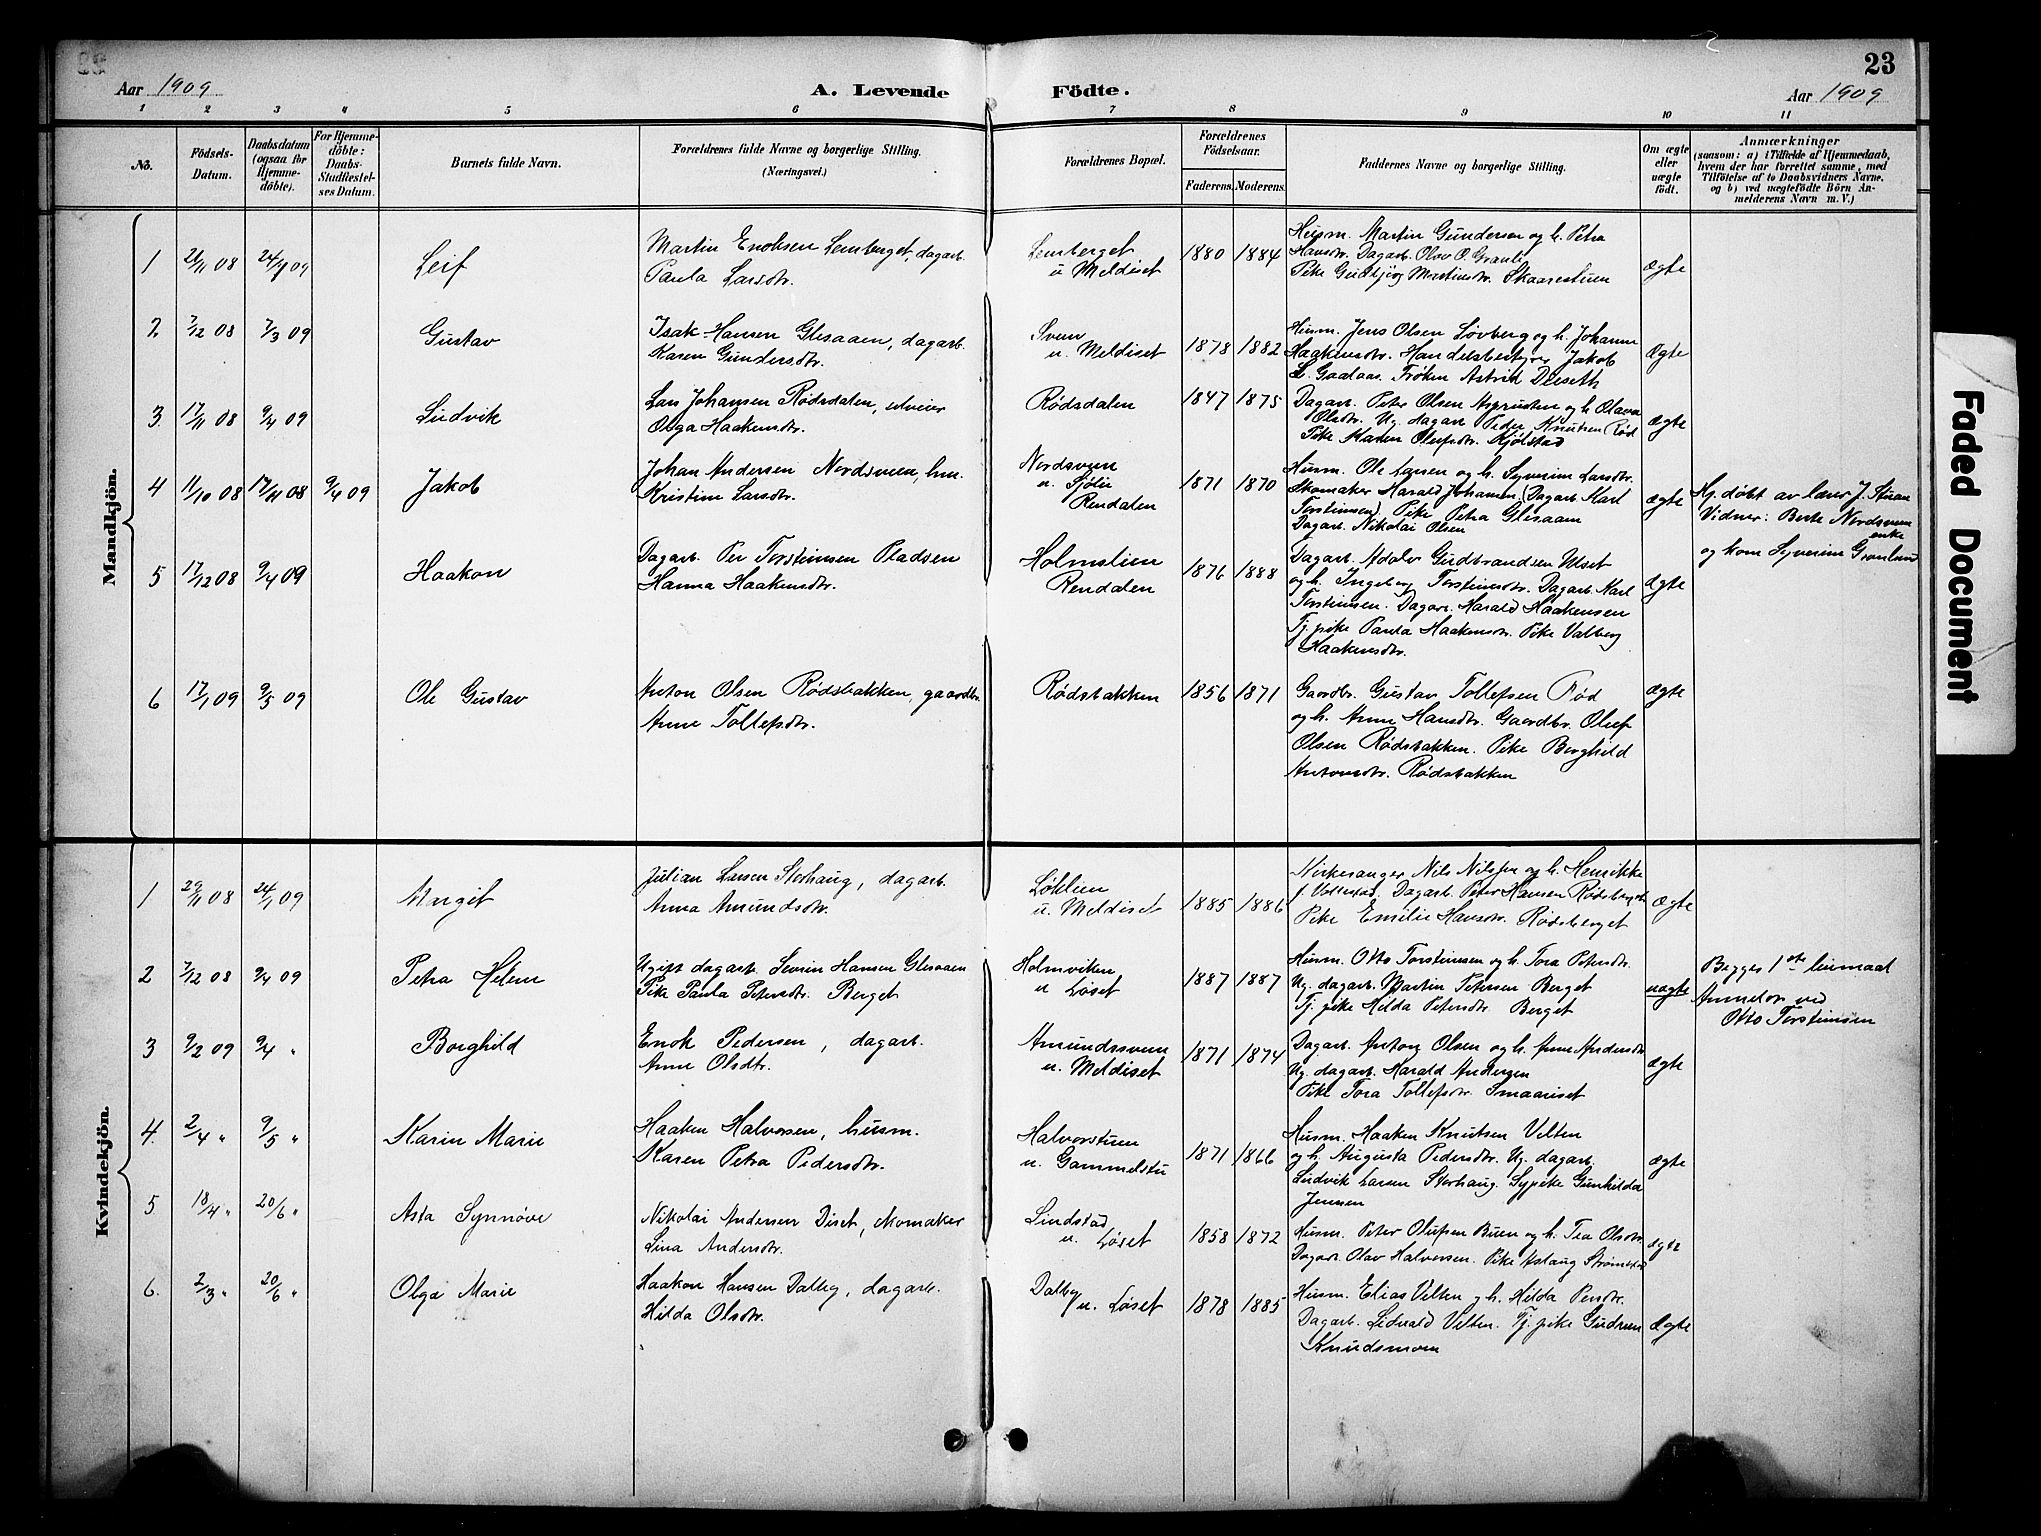 23
Aar 1909
A. Levende Födte.
Aar 1909
1 2 3 4 5 6 7 8 9 10 11
No.
Födsels-Datum.
Daabsdatum (ogsaa for Hjemme-döbte).
For Hjemme-döbte: Daabs-Stadfæstel-ses Datum.
Barnets fulde Navn.
Forældrenes fulde Navne og borgerlige Stilling.
(Næringsvei.)
Forældrenes Bopæl.
Forældrenes Födselsaar.
Faderens. Moderens.
Faddernes Navne og borgerlige Stilling.
Om ægte eller uægte födt.
Anmærkninger
(saasom: a) i Tilfælde af Hjemmedaab,
hvem der har forrettet samme, med
Tilföielse af to Daabsvidners Navne.
og b) ved uægtefödte Börn An-
melderens Navn m. V.)
Mandkjön.
1 21/11 08 24/1 09 Leif
Martin Enoksen Lemberget, dagarb.
Paula Larsdtr.
Lemberget
u. Meldiset
1880 1884
Husm. Martin Gundersen og h. Petra
Hansdtr. Dagarb. Olav O. Granli
Pike Gudbjørg Martinsdtr. Skaarestuen
ægte
2 7/12 08 7/3 09 Gustav
Isak Hansen Glesaaen, dagarb.
Karen Gundersdtr.
Sveen
u. Meldiset
1878 1882
Husm. Jens Olsen Løvberg og h. Johanne
Haakensdtr. Handelsbestyrer Jakob
L. Gaalaas. Frøken Astrid
ægte
3 17/11 08 9/4 09 Ludvik
Lars Johansen Rødsdalen, selveier
Olga Haakensdtr.
Rødsdalen
1847 1875
Dagarb. Peter Olsen og h. Olava
Olsdtr. Ug. dagarb. Peder Knutsen Rød
Pike Karen Olufsdtr. Kjølstad
ægte
4 11/10 08 17/11 08 9/4 09 Jakob
Johan Andersen Nordsveen, hm.
Kristine Larsdtr.
Nordsveen
u. Sjøli
Rendalen
1871 1870
Husm. Ole Larsen og h. Syverine Larsdtr.
Skomaker Harald Johansen, Dagarb. Karl
Torsteinsen, Pike Petra Glesaaen
Dagarb. Nikolai Olsen
ægte
Hj. døbt av lærer J. Stuan
Vidner: Berte Nordsveen
enke
og kone Syverine Grønlund
5 17/12 08 9/4 09 Haakon
Dagarb. Per Torsteinsen Pladsen
Hanna Haakensdtr.
Holmslien
Rendalen
1876 1888
Dagarb. Adolv Gudbrandsen Uset
og h. Ingeborg Torsteinsdtr. Dagarb. Karl
Torsteinsen. Dagarb. Harald Haakensen
Tj. pike Paula Haakensdtr. Pike Valborg
Haakensdtr.
ægte
6 17/1 09 9/5 09 Ole Gustav
Anton Olsen Rødsbakken, gaardbr.
Anne Tollefsdtr.
Rødsbakken
1856 1871
Gaardbr. Gustav Tollefsen Rød
og h. Anne Hansdtr. Gaardbr. Oluf
Olsen Rødsbakken. Pike Borghild
Antonsdtr. Rødsbakken
ægte
Kvindekjön.
1 29/11 08 24/1 09 Margit
Julian Larsen Storhaug, dagarb.
Anna Amundsdtr.
Løklien
u. Meldiset
1885 1886
Kirkesanger Nils Nilsen og h. Henrikke
Dagarb. Peter Hansen Rødsberget
Pike Emilie Hansdtr. Rødsberget
ægte
2 7/12 08 9/4 09 Petra Helene
Ugift dagarb. Severin Hansen Glesaaen
Pike Paula Petersdtr. Berget
Holmviken
u Løset
1887 1887
Husm. Otto Torsteinsen og h. Tora Petersdtr.
Ug. dagarb. Martin Petersen Berget
Tj. pike Hilda Petersdtr. Berget
uægte
Begges 1ste leiermaal
Anmelder ved
Otto Torsteinsen
3 9/2 09 9/4 " Borghild
Enok Pedersen, dagarb.
Anne Olsdtr.
Amundssveen
u. Meldiset
1871 1874
Dagarb. Anton Olsen og h. Anne Andersdtr.
Ug. dagarb. Harald Andersen
Pike Tora Tollefsdtr. Smaariset
ægte
4. 2/4 " 9/5 " Karin Marie
Haaken Halvorsen, husm.
Karen Petra Pedersdtr.
Halvorstuen
u. Gammelstu
1871 1866
Husm. Haaken Knutsen Velten
og h. Augusta Pedersdtr. Ug. dagarb.
Ludvik Larsen Storhaug. Sypike Gunhilda
Jensen
ægte
5 18/4 " 20/6 " Asta Synnøve
Nikolai Andersen Diset, skomaker
Lina Andersdtr.
Lindstad
u. Løset
1858 1872
Husm. Peter Olufsen Buen og h. Tea Olsdtr.
Dagarb. Olav Halvorsen. Pike Aslaug Strømstad
ægte
6. 2/3 " 20/6 " Olga Marie
Haakon Hansen Dalby, dagarb.
Hilda Olsdtr.
Dalby
u. Løset
1878 1885
Husm. Elias Velten og h. Hilda Pensdtr.
Dagarb. Lidvald Velten. Tj. pike Gudrun
Knudsmoen
ægte
Faded Document